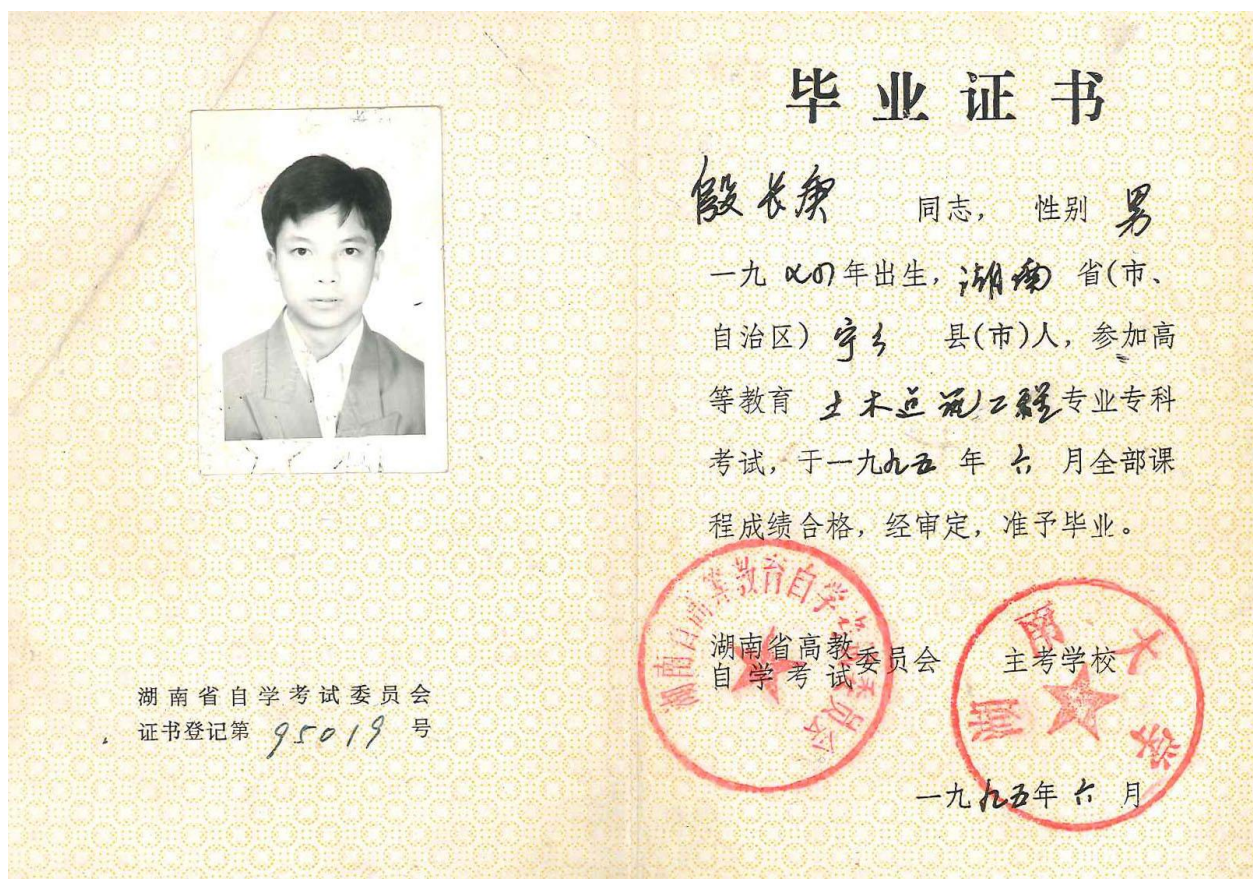 湖南省自学考试委员会
证书登记第 95019 号
毕业证书
段长庚 同志， 性别 男
一九七四年出生，湖南省(市、
自治区) 宁乡 县(市)人，参加高
等教育 土木建筑工程专业专科
考试，于一九九五 年 六 月全部课
程成绩合格，经审定，准予毕业。
湖南省高教
自学考试委员会 主考学校
湖南省高等教育自学考试委员会
湖南大学
一九九五年六月